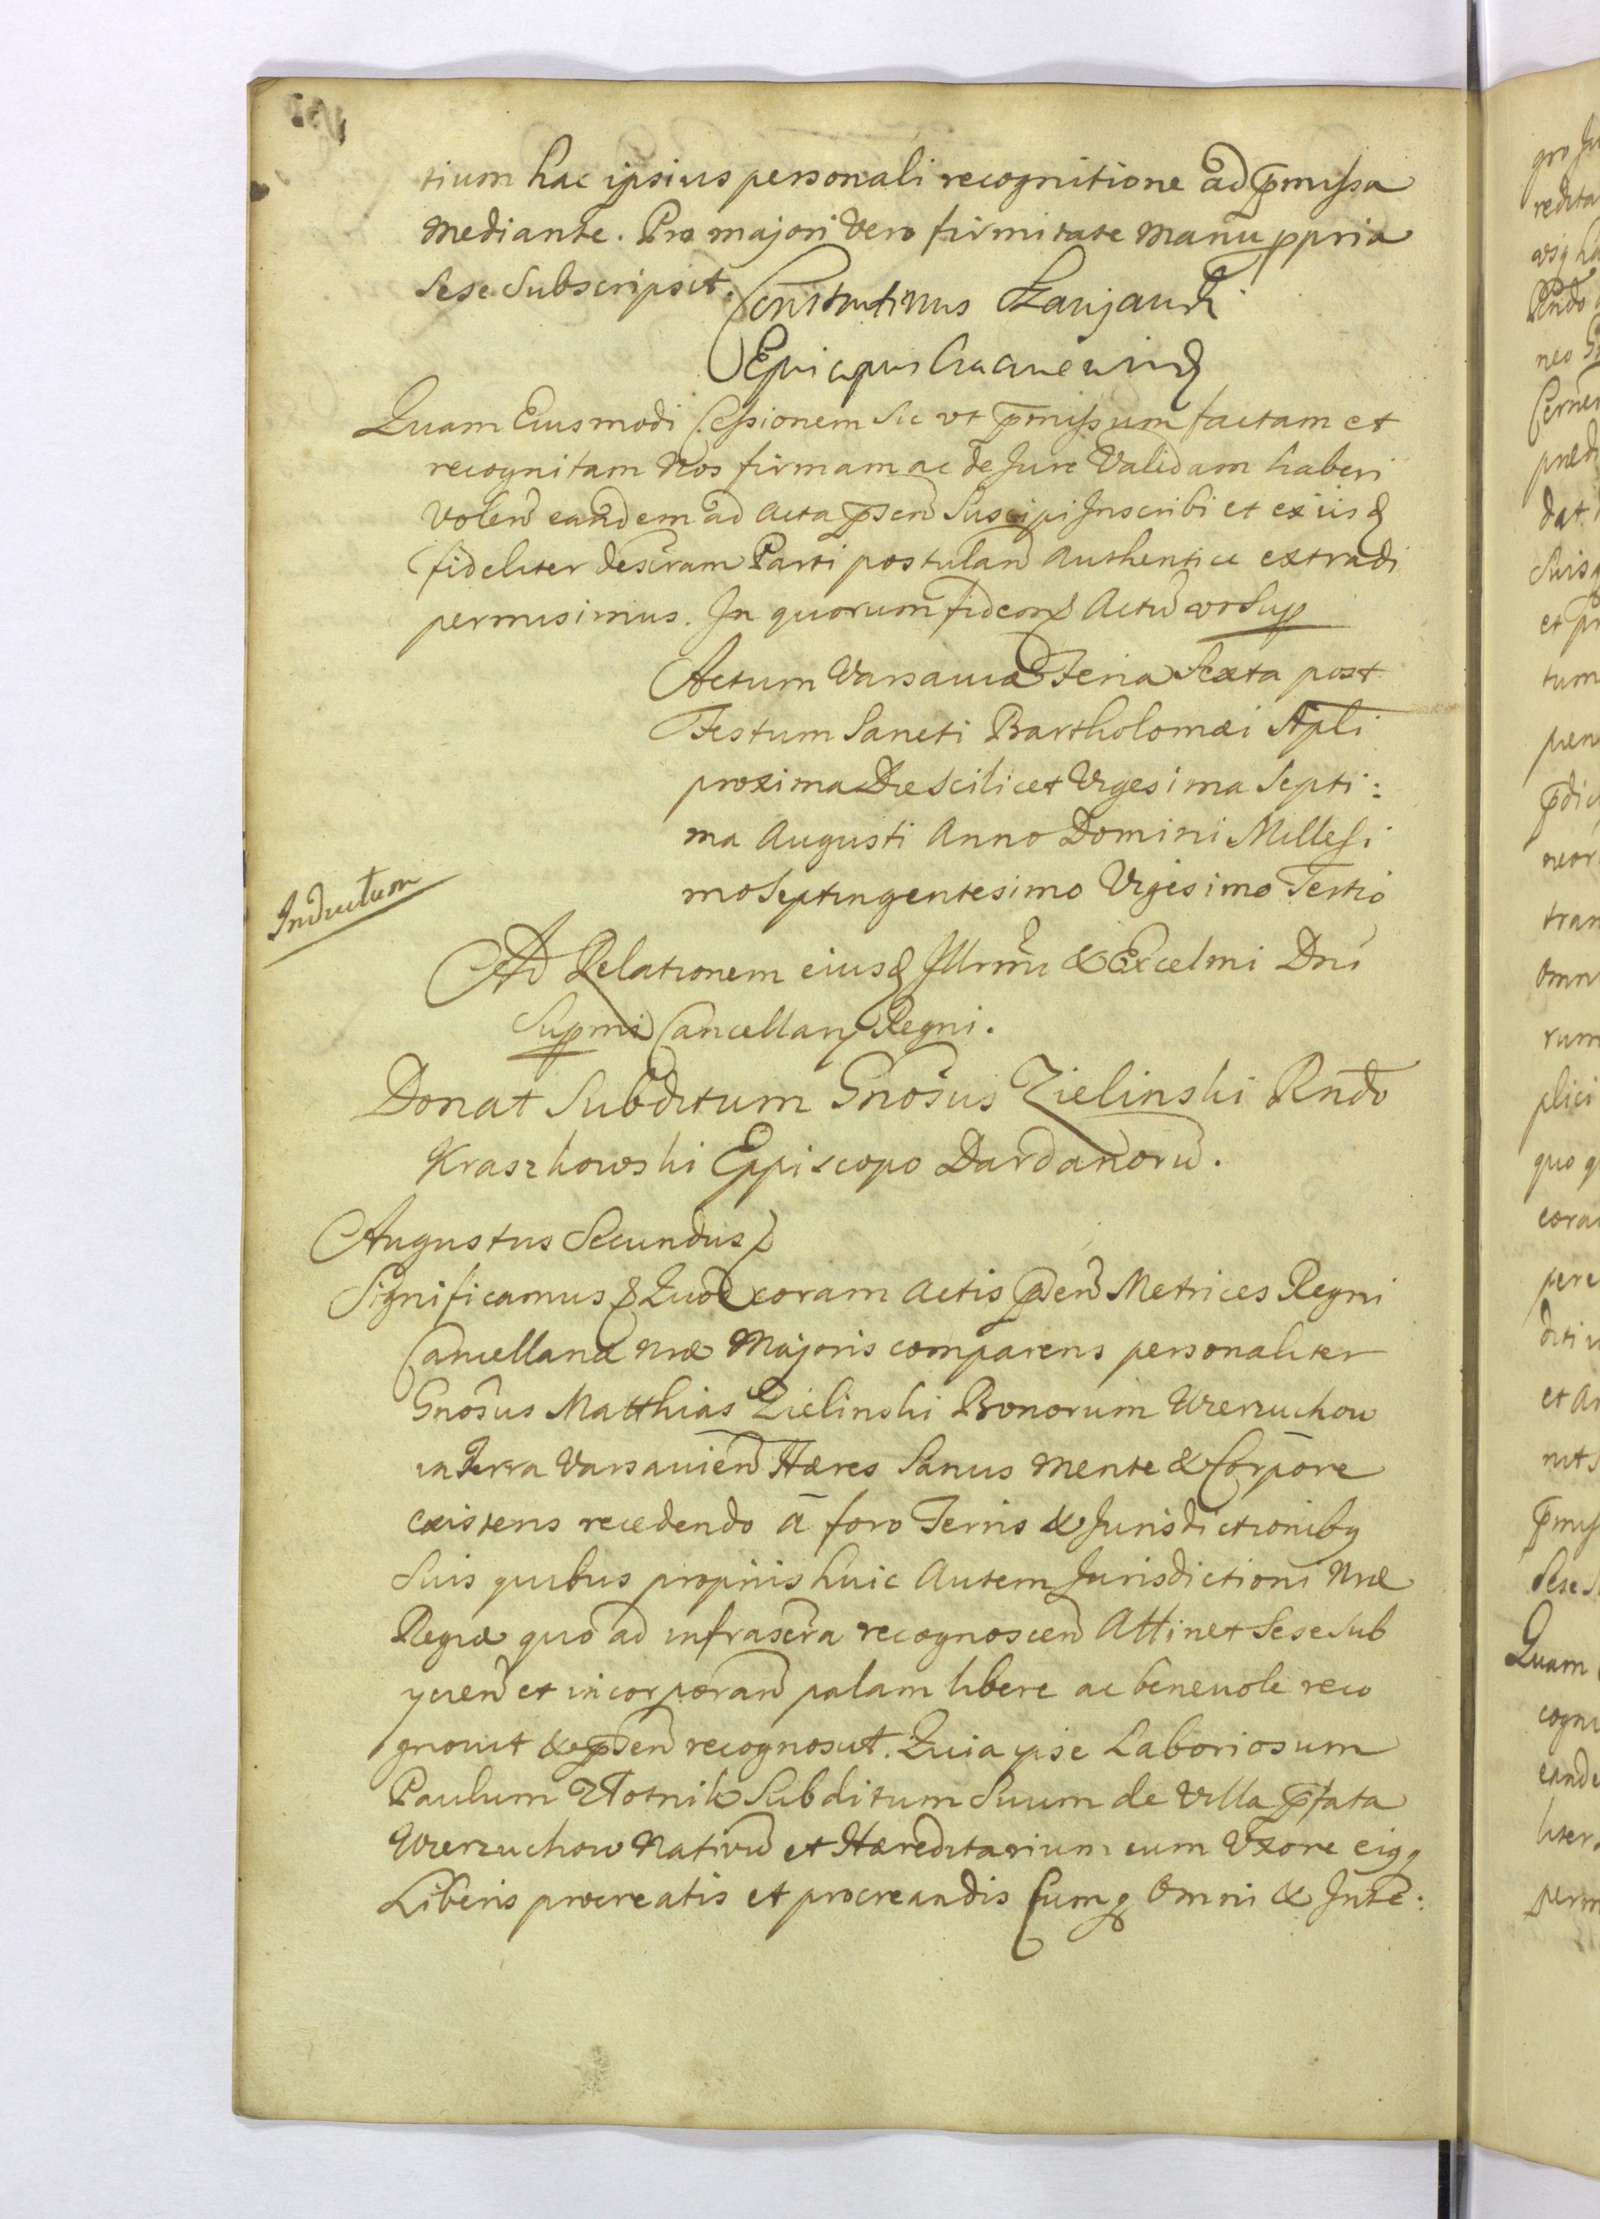 tium hac ipsius personali recognitione ad p̄missa
mediante. Pro majori vero firmitate manu ppria
sese subscripsit.
Constantinus
Episcopus
Quam Eiusmodi Cessionem sic vt p̄missum factam et
recognitam Nos firmam ac de Jure Validam haberi
volen̄ eandem ad acta p̄sen̄ Suscipi Inscribi et ex iisd
fideliter descr̄am Parti postulan̄ authentice extradi
permisimus. In quorum fidem Actū vt Sup
Actum Varsaviæ Feria Sexta post
Festum Sancti Bartholomæi Apli
proxima Die scilicet Vigesima Septi:
ma Augusti Anno Domini Millesi
mo Septingentesimo Vigesimo Tertio
Inductum
Ad Relationem eiusd Illrm̄i & Excelmi Dni
Supmi Cancellarij Regni.
Donat Subditum Gnōsus Zielinski Rndō
Kraszkowski Eppiscopo Dardanorū.
Augustus Secundus
Significamus Quod coram actis p̄sen̄ Metrices Regni
Cancellariæ nræ Majoris comparens personaliter
Gnōsus Matthias Zielinski Bonorum Wierzuchow
in Terra Varsavien̄ Hæres Sanus mente & Corpore
existens recedendo ā foro Terris & Jurisdictioniby
suis quibus propriis huic autem Jurisdictioni nræ
Regiæ quo ad infrascr̄a recognoscen̄ attinet sese sub
ycien̄ et incorporan̄ palam libere ac benevole reco
gnovit & p̄sen̄ recognoscit. Quia ipse Laboriosum
Paulum Złotnik Subditum Suum de Villa p̄fata
Wierzuchow Nativū et Hæreditarium cum Uxore eiq
Liberis procreatis et procreandis Cumq Omni & Inte: